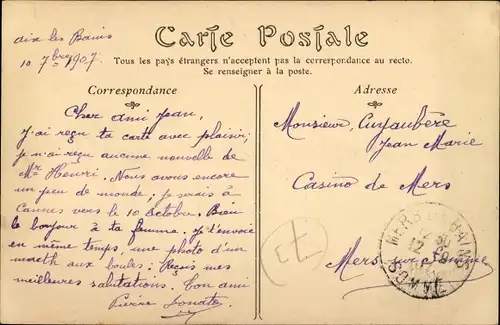 Carte Postale
Aix les Bains
10 7bre 1907
Tous les pays étrangers n'acceptent pas la correspondance au recto.
Se renseigner à la poste.
Correspondance
Cher ami Jean,
J'ai reçu ta carte avec plaisir,
je n'ai reçu aucune nouvelle de
Mr Henri. Nous avons encore
un peu de monde; je serais à
Cannes vers le 10 Octobre. Bien
le bonjour à ta femme. Je t'envoie
en même temps, une photo d'un
match aux boules: Reçois mes
meilleures salutations. Ton ami
Pierre Donato
Adresse
Monsieur Cuyaubère
Jean Marie
Casino de Mers
Mers sur
MERS LES BAINS